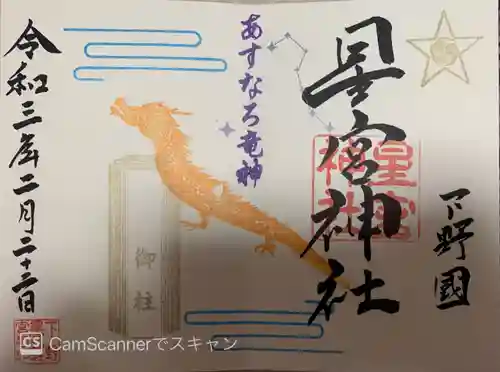 下野國
星宮神社
星宮
神社
あすなろ竜神
御柱
令和三年二月二十三日
CS CamScannerでスキャン